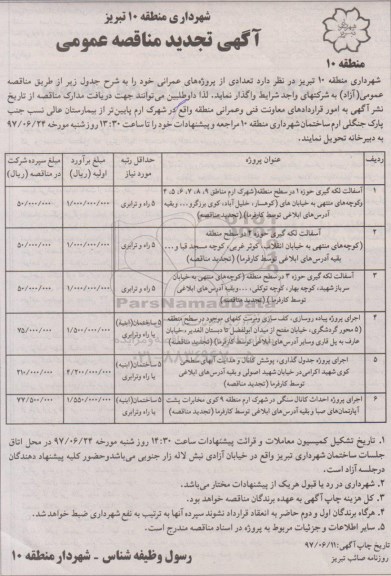 شهرداری منطقه ۱۰ تبریز
آگهی تجدید مناقصه عمومی
منطقه ۱۰
شهرداری منطقه ۱۰ تبریز در نظر دارد تعدادی از پروژه‌های عمرانی خود را به شرح جدول زیر از طریق مناقصه
عمومی(آزاد) به شرکتهای واجد شرایط واگذار نماید. لذا داوطلبین می‌توانند جهت دریافت مدارک مناقصه از تاریخ
نشر آگهی به امور قراردادهای معاونت فنی وعمرانی منطقه واقع در شهرک ارم پایین‌تر از بیمارستان عالی نسب جنب
پارک جنگلی ارم ساختمان شهرداری منطقه ۱۰ مراجعه و پیشنهادات خود را تا ساعت ۱۳:۳۰ روز شنبه مورخه ۹۷/۰۶/۲۴
به دبیرخانه تحویل نمایند.
ردیف عنوان پروژه حداقل رتبه مورد نیاز مبلغ برآورد اولیه (ریال) مبلغ سپرده شرکت در مناقصه (ریال)
۱ آسفالت لکه گیری حوزه ۱ در سطح منطقه(شهرک ارم مناطق ۹، ۸، ۷، ۶، ۵، ۴
وکوچه‌های منتهی به خیابان های (کوهسار، خلیل آباد، کوی بزرگرو... وبقیه
آدرس‌های ابلاغی توسط کارفرما) (تجدید مناقصه)
۵ راه و ترابری ۱/۰۰۰/۰۰۰/۰۰۰ ۵۰/۰۰۰/۰۰۰
۲ آسفالت لکه گیری حوزه ۲ در سطح منطقه
(کوچه‌های منتهی به خیابان انقلاب، کوثر غربی، کوچه مسجد قبا و...
بقیه آدرس‌های ابلاغی توسط کارفرما) (تجدید مناقصه)
۵ راه و ترابری ۱/۰۰۰/۰۰۰/۰۰۰ ۵۰/۰۰۰/۰۰۰
۳ آسفالت لکه گیری حوزه ۳ در سطح منطقه (کوچه‌های منتهی به خیابان
سرباز شهید، کوچه بهار، کوچه توکلی، ....وبقیه آدرس‌های ابلاغی
توسط کارفرما) (تجدید مناقصه)
۵ راه و ترابری ۱/۰۰۰/۰۰۰/۰۰۰ ۵۰/۰۰۰/۰۰۰
۴ اجرای پروژه پیاده روسازی، کف سازی ومرمت کفهای موجود در سطح منطقه
(۵ محور گردشگری، خیابان مفتح از میدان ابوالفضل تا دبستان الغدیر و خیابان
عارف به پل قاری وسایر آدرس‌های ابلاغی توسط کارفرما) (تجدید مناقصه)
۵ ساختمان(ابنیه) یا راه وترابری ۱/۵۰۰/۰۰۰/۰۰۰ ۷۵/۰۰۰/۰۰۰
۵ اجرای پروژه جدول گذاری، پوشش کانال و هدایت آبهای سطحی
کوی شهید اکرامی در خیابان شهید اصولی و بقیه آدرس‌های ابلاغی
توسط کارفرما (تجدید مناقصه)
۵ ساختمان(ابنیه) یا راه وترابری ۴/۲۰۰/۰۰۰/۰۰۰ ۲۱۰/۰۰۰/۰۰۰
۶ اجرای پروژه احداث کانال سنگی در شهرک ارم منطقه ۹ کوی مخابرات پشت
آپارتمان‌های صبا و بقیه آدرس‌های ابلاغی توسط کارفرما (تجدید مناقصه)
۵ ساختمان(ابنیه) یا راه وترابری ۱/۵۵۰/۰۰۰/۰۰۰ ۷۷/۵۰۰/۰۰۰
۱. تاریخ تشکیل کمیسیون معاملات و قرائت پیشنهادات ساعت ۱۴:۳۰ روز شنبه مورخه ۹۷/۰۶/۲۴ در محل اتاق
جلسات ساختمان شهرداری تبریز واقع در خیابان آزادی نبش لاله زار جنوبی می‌باشدوحضور کلیه پیشنهاد دهندگان
درجلسه آزاد است.
۲. شهرداری در رد یا قبول هریک از پیشنهادات مختار می‌باشد.
۳. کل هزینه چاپ آگهی به عهده برندگان مناقصه خواهد بود.
۴. هرگاه برندگان اول و دوم حاضر به انعقاد قرارداد نشوند سپرده آنها به ترتیب به نفع شهرداری ضبط خواهد شد.
۵. سایر اطلاعات و جزئیات مربوط به پروژه در اسناد مناقصه مندرج است.
تاریخ چاپ آگهی: ۹۷/۰۶/۱۱
روزنامه صائب تبریز
رسول وظیفه شناس - شهردار منطقه ۱۰
ParsNamadData